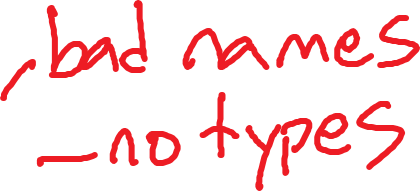 -bad names
-no types